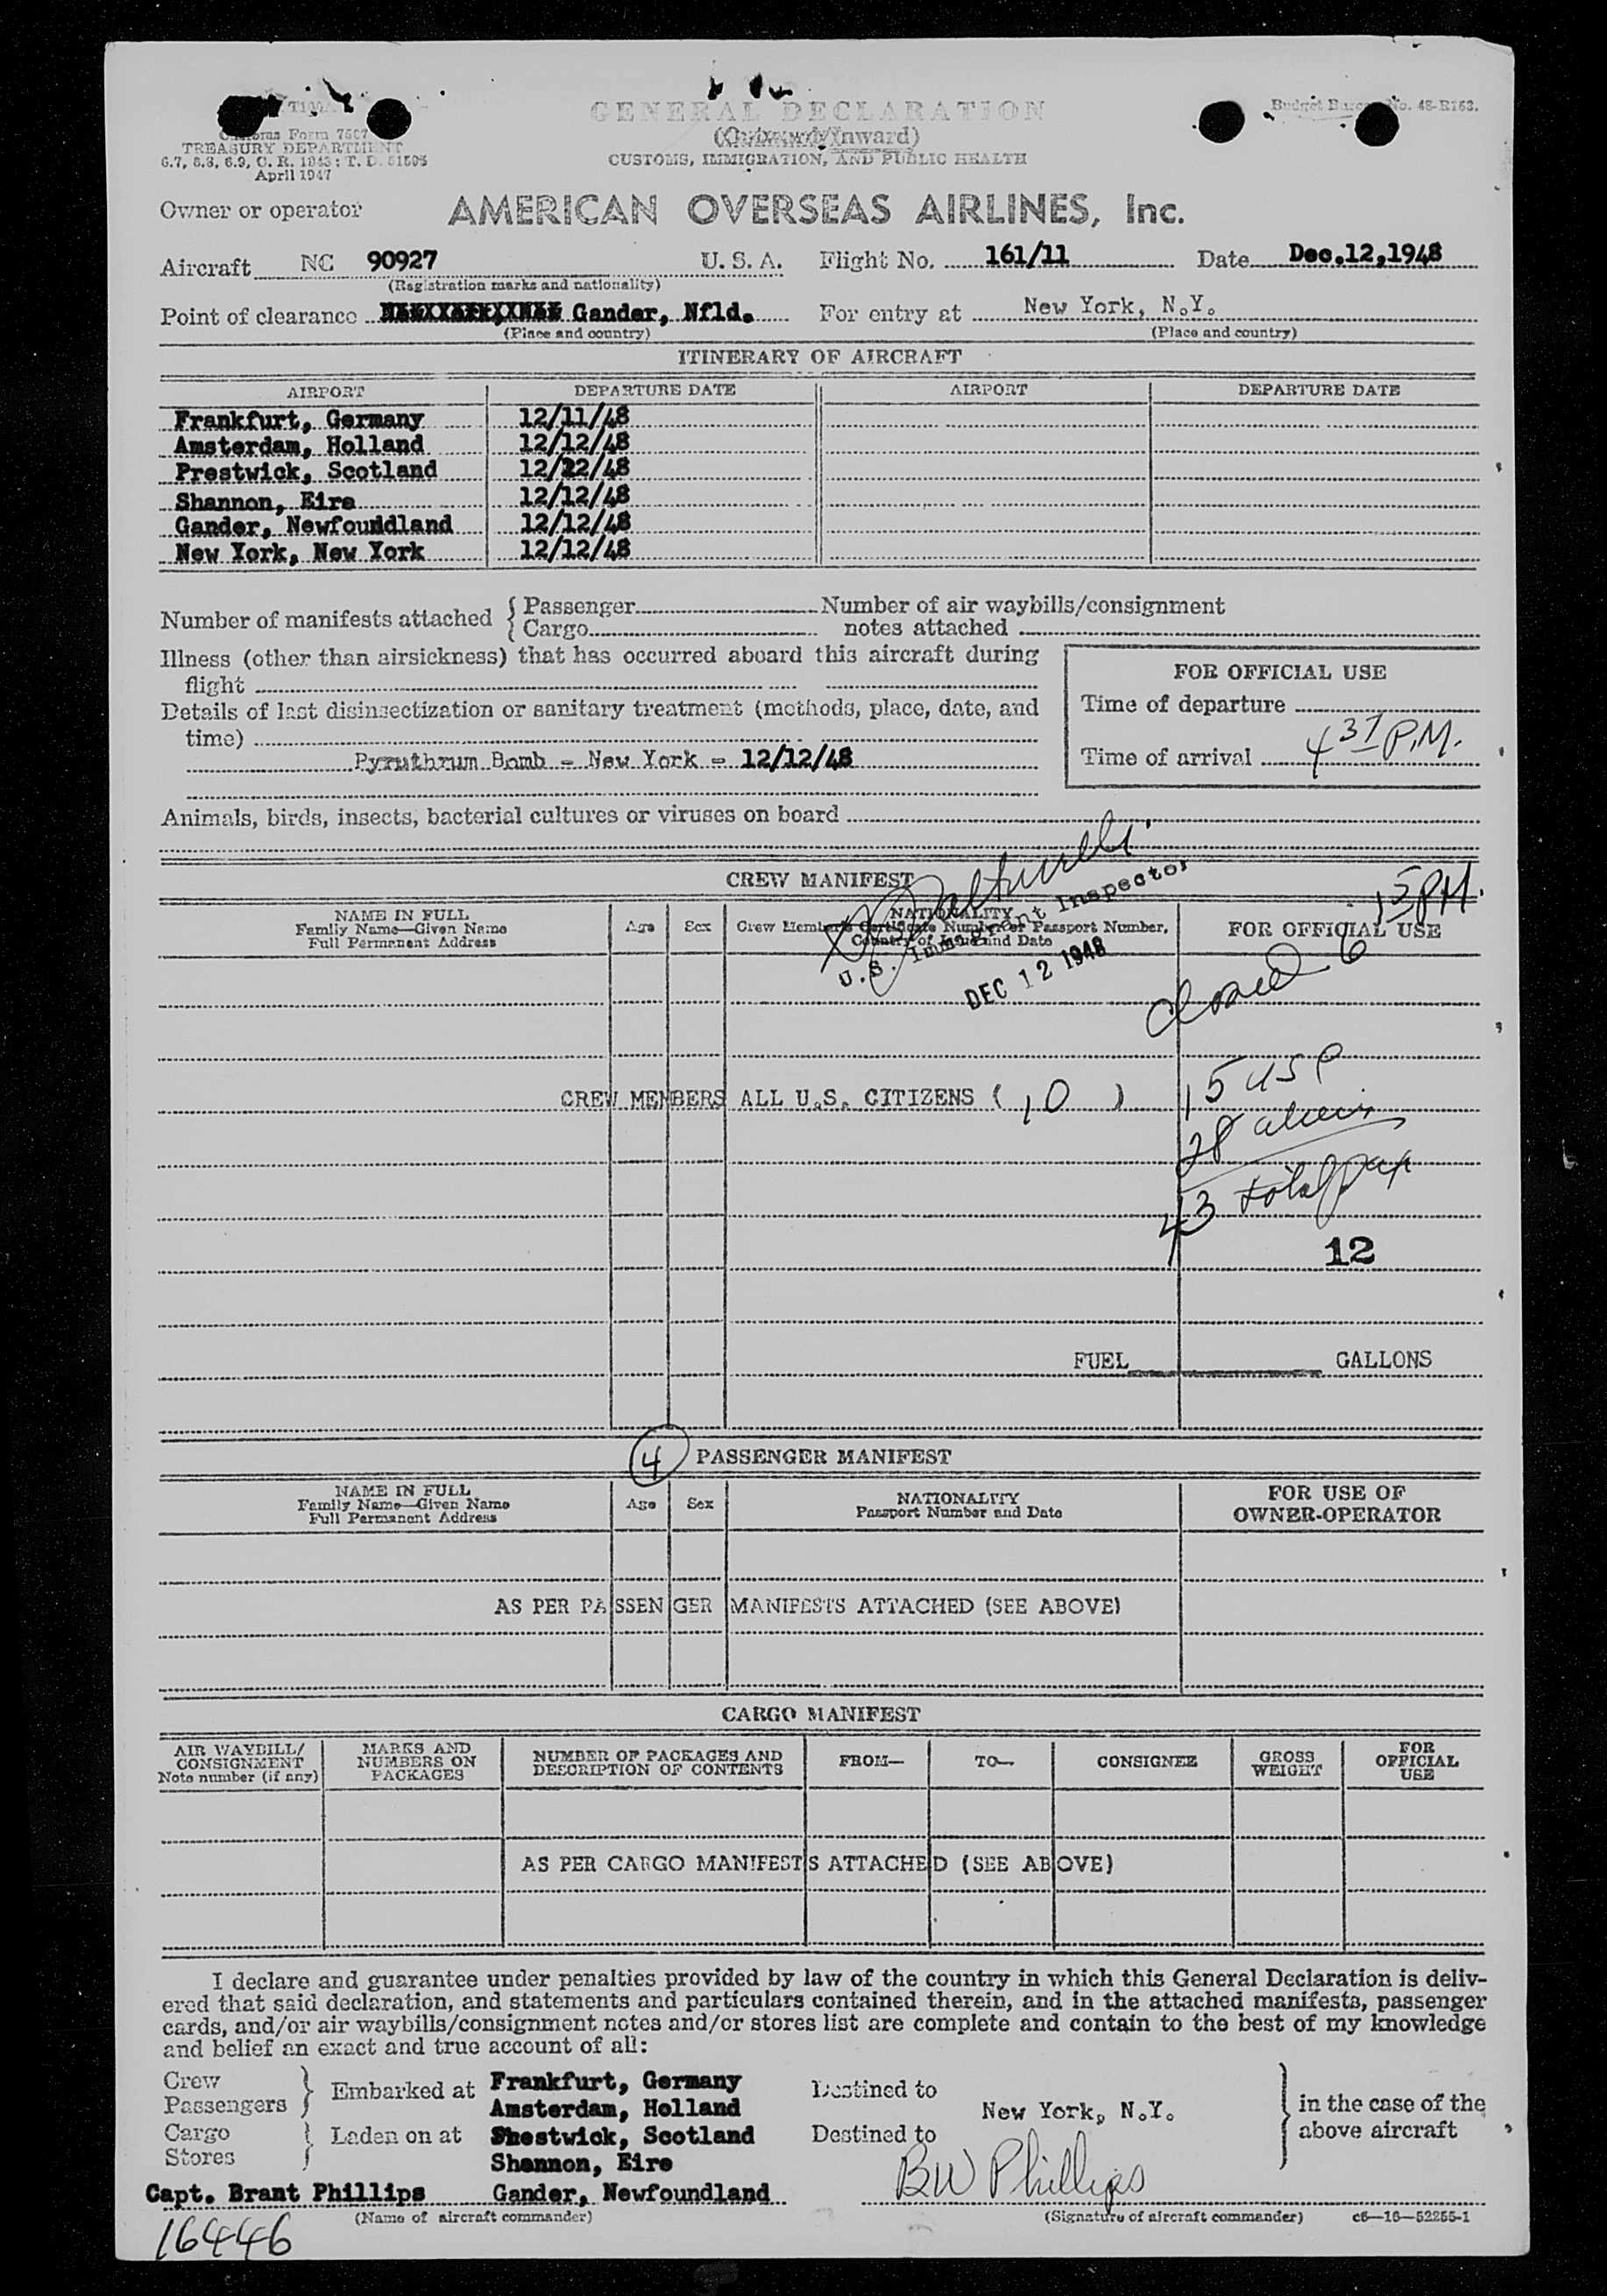 GENERAL DECLARATION
(Outward/Inward)
CUSTOMS, IMMIGRATION, AND PUBLIC HEALTH
Customs Form 7507
TREASURY DEPARTMENT
6.7, 6.8, 6.9, C. R. 1943; T. D. 51595
April 1947
Budget Bureau No. 48-R163.
Owner or operator AMERICAN OVERSEAS AIRLINES, Inc.
Aircraft NC 90927 U. S. A. Flight No. 161/11 Date Dec.12,1948
(Registration marks and nationality)
Point of clearance Gander, Nfld. For entry at New York, N.Y.
(Place and country) (Place and country)
ITINERARY OF AIRCRAFT
AIRPORT DEPARTURE DATE AIRPORT DEPARTURE DATE
Frankfurt, Germany 12/11/48
Amsterdam, Holland 12/12/48
Prestwick, Scotland 12/12/48
Shannon, Eire 12/12/48
Gander, Newfoundland 12/12/48
New York, New York 12/12/48
Number of manifests attached { Passenger Number of air waybills/consignment
Cargo notes attached
Illness (other than airsickness) that has occurred aboard this aircraft during
flight
Details of last disinsectization or sanitary treatment (methods, place, date, and
time)
Pyruthrum Bomb - New York - 12/12/48
FOR OFFICIAL USE
Time of departure
Time of arrival 4 37 P.M.
Animals, birds, insects, bacterial cultures or viruses on board
CREW MANIFEST
NAME IN FULL
Family Name—Given Name
Full Permanent Address
Age Sex
NATIONALITY
Crew Member's Certificate Number or Passport Number,
Country of Issue and Date
FOR OFFICIAL USE
U.S. Immigrant Inspector
DEC 12 1948
closed 6 15 PM.
CREW MEMBERS ALL U.S. CITIZENS ( 10 )
15 USP
28 aliens
43 total pax
12
FUEL GALLONS
4 PASSENGER MANIFEST
NAME IN FULL
Family Name—Given Name
Full Permanent Address
Age Sex
NATIONALITY
Passport Number and Date
FOR USE OF
OWNER-OPERATOR
AS PER PASSENGER MANIFESTS ATTACHED (SEE ABOVE)
CARGO MANIFEST
AIR WAYBILL/
CONSIGNMENT
Note number (if any)
MARKS AND
NUMBERS ON
PACKAGES
NUMBER OF PACKAGES AND
DESCRIPTION OF CONTENTS
FROM— TO— CONSIGNEE
GROSS
WEIGHT
FOR
OFFICIAL
USE
AS PER CARGO MANIFESTS ATTACHED (SEE ABOVE)
I declare and guarantee under penalties provided by law of the country in which this General Declaration is deliv-
ered that said declaration, and statements and particulars contained therein, and in the attached manifests, passenger
cards, and/or air waybills/consignment notes and/or stores list are complete and contain to the best of my knowledge
and belief an exact and true account of all:
Crew
Passengers } Embarked at
Cargo
Stores } Laden on at
Frankfurt, Germany
Amsterdam, Holland
Prestwick, Scotland
Shannon, Eire
Gander, Newfoundland
Destined to
Destined to
New York, N.Y.
in the case of the
above aircraft
Capt. Brant Phillips
(Name of aircraft commander)
BW Phillips
(Signature of aircraft commander) c6—16—52255-1
16446